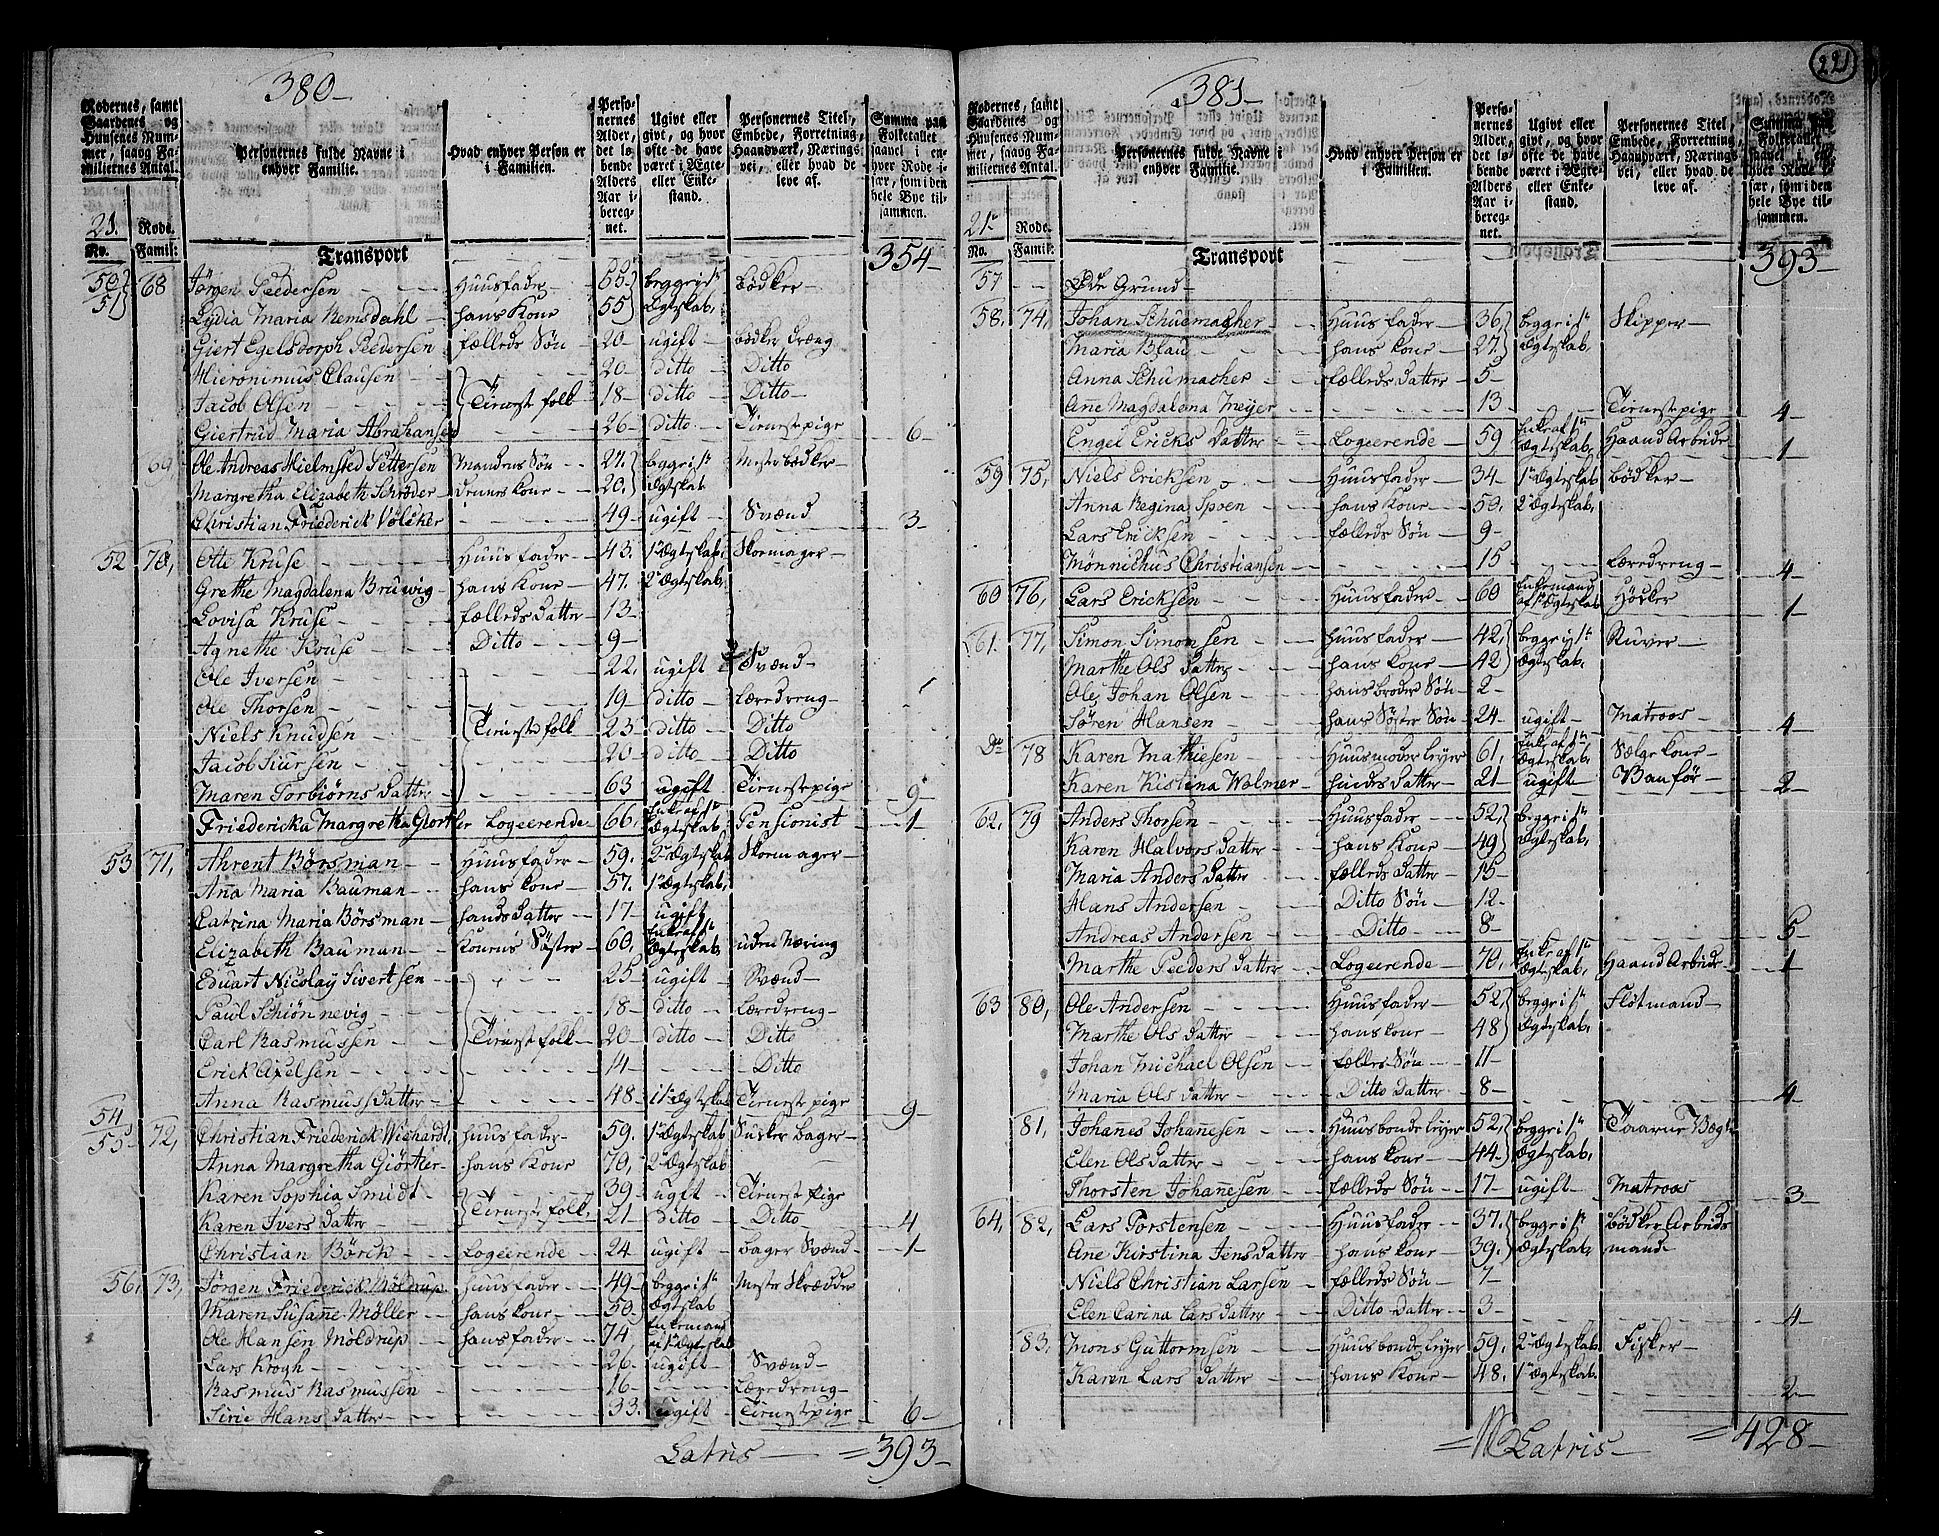 380
Rodernes, samt Gaardenes og Huusenes Nummer, saavog Familiernes Antal.
Personernes fulde Navne i enhver Familie.
Hvad enhver Person er i Familien.
Personernes Alder, det løbende Alders Aar iberegnet.
Ugivt eller givt, og hvor ofte de have været i Ægte- eller Enkestand.
Personernes Titel, Embede, Forretning, Haandværk, Næringsvei, eller hvad de leve af.
Summa paa Folketallet saavel i enhver Rode især, som i den hele Bye tilsammen.
21. Rode.
No. Famil:
Transport 354
50 51 68 Jörgen Pedersen Huusfader 65 begge i 1te Bödker
Lydia Maria Remsdahl hans Kone 55 Ægteskab
Giert Egelsdorph Pedersen fælleds Sön 20 ugift Bödker Dreng
Hieronimus Clausen 20 ditto Ditto
Jacob Olsen Tieneste folk 18 ditto Ditto
Giertrud Maria Abrahamsen 26 ditto Tienestepige 6
69 Ole Andreas Hielmsted Pettersen Mandens Sön 27 begge i 1te Mester Bödker
Margretha Elizabeth Schröder dennes Kone 20 Ægteskab
Christian Friederick Völcker 49 ugift Svænd 3
52 70 Otte Kruse Huusfader 43 1te Ægteskab Skomager
Grethe Magdalena Bruwig hans Kone 47 2det Ægteskab
Lovisa Kruse fælleds Datter 13
Agnethe Kruse Ditto 9
Ole Iversen 22 ugift Svænd
Ole Thorsen 19 ditto Læredreng
Niels Knudsen Tieneste folk 23 ditto Ditto
Jacob Siursen 20 ditto Ditto
Maren Torbiörns Datter 63 ugift Tienestepige 9
Friedericka Margretha Giörtler Logeerende 66 Enke af 1te Ægteskab Pensionist 1
53 71 Ahrent Börsman Huusfader 59 2det Ægteskab Skomager
Anna Maria Bauman hans Kone 57 1te Ægteskab
Catrina Maria Börsman hands Datter 17 ugift
Elizabeth Bauman Konens Söster 60 Enke af 1te Ægteskab uden Næring
Eduart Nicolay Sivertsen 25 ugift Svænd
Paul Schiönnevig 18 ditto Læredreng
Carl Rasmussen Tieneste folk 20 ditto Ditto
Erick Axelsen 14 Ditto
Anna Rasmusdatter 48 i 1te Ægteskab Tienestepige 9
54 55 72 Christian Friederick Wichardt Huusfader 59 1te Ægteskab Sukker Bager
Anna Margretha Giörtler hans Kone 70 2det Ægteskab
Karen Sophia Smidt Tieneste folk 39 ugift Tieneste Pige
Karen Ivers Datter 21 Ditto Ditto 4
Christian Börch Logeerende 24 ugift Bager Svænd 1
56 73 Jörgen Friederick Möldrup Huusfader 49 begge i 1te Mester Skrædder
Maren Susanne Möller hans Kone 50 Ægteskab
Ole Hansen Möldrup hans fader 74 Enkemand af 1te Ægteskab
Lars Krogh 26 ugift Svænd
Rasmus Rasmussen 16 Læredreng
Sirie Hans Datter 33 ugift Tienestepige 6
Latris = 393
221
381
Rodernes, samt Gaardenes og Huusenes Nummer, saavog Familiernes Antal.
Personernes fulde Navne i enhver Familie.
Hvad enhver Person er i Familien.
Personernes Alder, det løbende Alders Aar iberegnet.
Ugivt eller givt, og hvor ofte de have været i Ægte- eller Enkestand.
Personernes Titel, Embede, Forretning, Haandværk, Næringsvei, eller hvad de leve af.
Summa paa Folketallet saavel i enhver Rode især, som i den hele Bye tilsammen.
21 Rode.
No. Famil:
Transport 393
57 Öde Grund
58 74 Johan Schuemacher Huusfader 36 begge i 1te Skipper
Maria Blau hans Kone 27 Ægteskab
Anna Schumacher fælleds Datter 5
Anne Magdalena Meyer 13 Tienestepige 4
Engel Ericks Datter Logeerende 59 Enke af 1te Ægteskab Haand Arbeide 1
59 75 Niels Ericksen Huusfader 34 1te Ægteskab Bödker
Anna Regina Spoen hans Kone 50 2det Ægteskab
Lars Ericksen fælleds Sön 9
Mönnichus Christiansen 15 Læredreng 4
60 76 Lars Ericksen Huusfader 60 Enkemand af 1te Ægteskab Höcker 1
61 77 Simon Simonsen Huusfader 42 begge i 1te
Marthe Ols Datter hans Kone 42 Ægteskab
Ole Johan Olsen hans broder Sön 2
Sören Hansen hans Söster Sön 24 ugift Matroos 4
Do 78 Karen Mathiesen Huusmoder leyer 61 Enke af 1te Ægteskab Sælge Kone
Karen Kistina Walmer hendes Datter 21 ugift Vanför 2
62 79 Anders Thorsen Huusfader 52 begge i 1te
Karen Halvors Datter hans Kone 49 Ægteskab
Maria Anders Datter fælleds Datter 15
Hans Andersen Ditto Sön 12
Andreas Andersen Ditto 8 5
Marthe Peeders Datter Logeerende 70 Enke af 1te Ægteskab Haand Arbeide 1
63 80 Ole Andersen Huusfader 52 begge i 1te Flötmand
Marthe Ols Datter hans Kone 48 Ægteskab
Johan Michael Olsen fælles Sön 11
Maria Ols Datter Ditto Datter 8 4
81 Johanes Johanesen Huusbonde leyer 52 begge i 1te Taarne Vægt
Elen Ols Datter hans Kone 44 Ægteskab
Thorsten Johannesen fælleds Sön 17 ugift Matroos 3
64 82 Lars Torstensen Huusfader 37 begge i 1te Bödker Arbeids
Ane Kirstina Jens Datter hans Kone 39 Ægteskab mand
Niels Christian Larsen fælleds Sön 7
Elen Carina Lars Datter Ditto Datter 3 4
83 Mons Guttormsen Huusbonde leyer 59 2det Ægteskab Fisker
Karen Lars Datter hans Kone 48 1te Ægteskab 2
Latris = 428